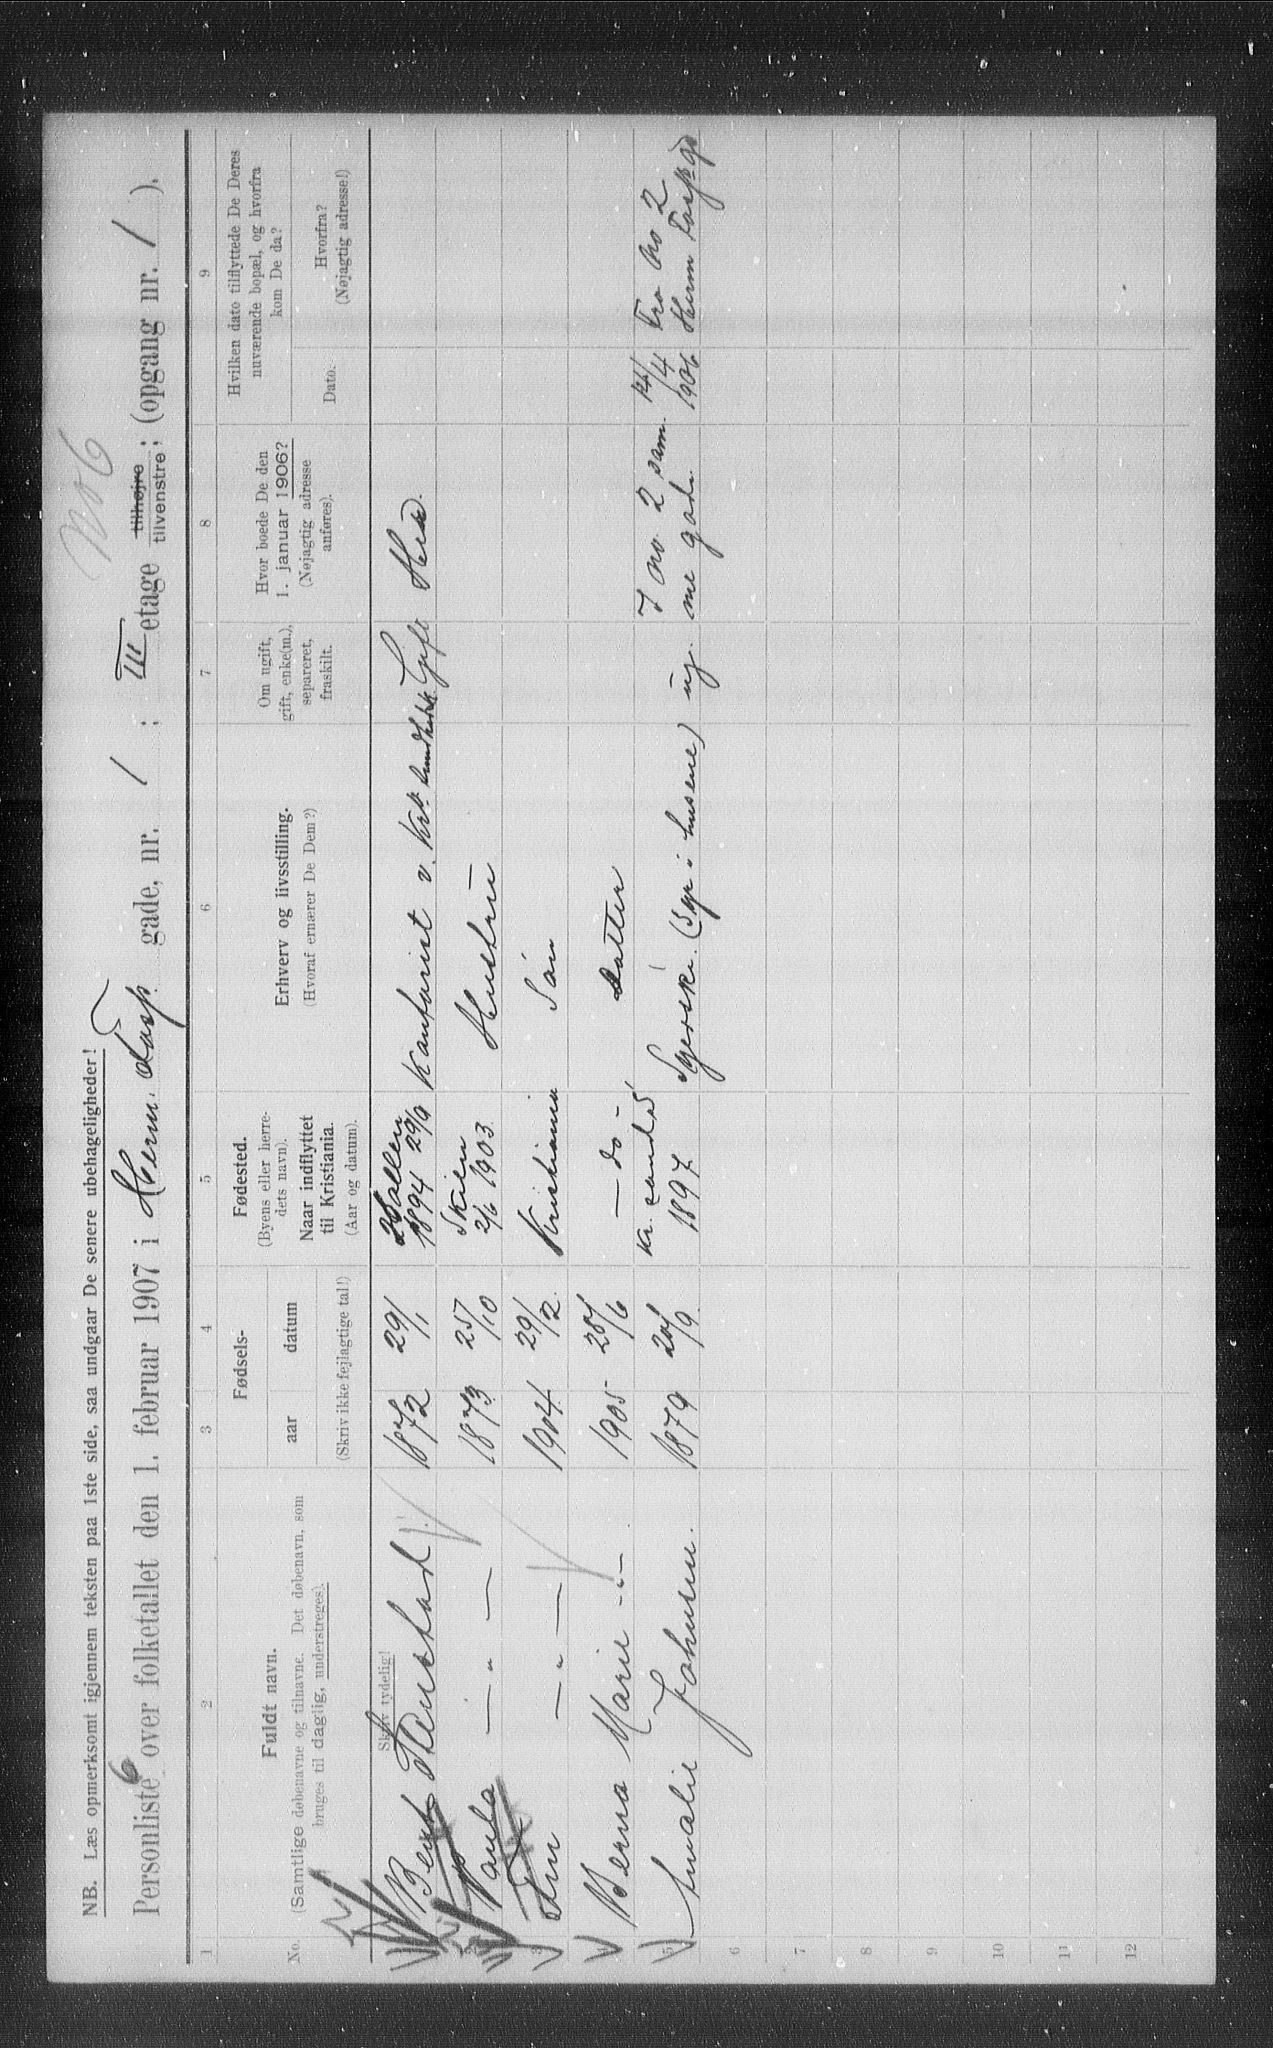 No 6
NB. Læs opmerksomt igjennem teksten paa 1ste side, saa undgaar De senere ubehageligheder!
Personliste 6 over folketallet den 1. februar 1907 i Herm. Foss gade, nr. 1 ; III etage tilhøjre tilvenstre ; (opgang nr. 1 ).
1 2 3 4 5 6 7 8 9
No.
Fuldt navn.
(Samtlige døbenavne og tilnavne. Det døbenavn, som
bruges til daglig, understreges).
Skriv tydelig!
Fødsels-
aar datum
(Skriv ikke fejlagtige tal!)
Fødested.
(Byens eller herre-
dets navn).
Naar indflyttet
til Kristiania.
(Aar og datum).
Erhverv og livsstilling.
(Hvoraf ernærer De Dem?)
Om ugift,
gift, enke(m.),
separeret,
fraskilt.
Hvor boede De den
1. januar 1906?
(Nøjagtig adresse
anføres).
Hvilken dato tilflyttede De Deres
nuværende bopæl, og hvorfra
kom De da?
Dato.
Hvorfra?
(Nøjagtig adresse!)
Bernt Thorstad 1872 29/1 1894 29/9 Kontorist v. Gift Her.
2 Paula — „ — 1873 25/10 Skien 2/6 1903 Hustru
3 — „ — 1904 29/2 Kristiania Søn
Berna Marie - „ - 1905 25/6 — do — Datter
5 Amalie Johnsen. 1879 20/9 Kr. sand S 1897 Syerske. (Syr i husene) ug. I no 2 sam me gade 14/4 1906 Fra No 2 Herm Foss gd
6
7
8
9
10
11
12